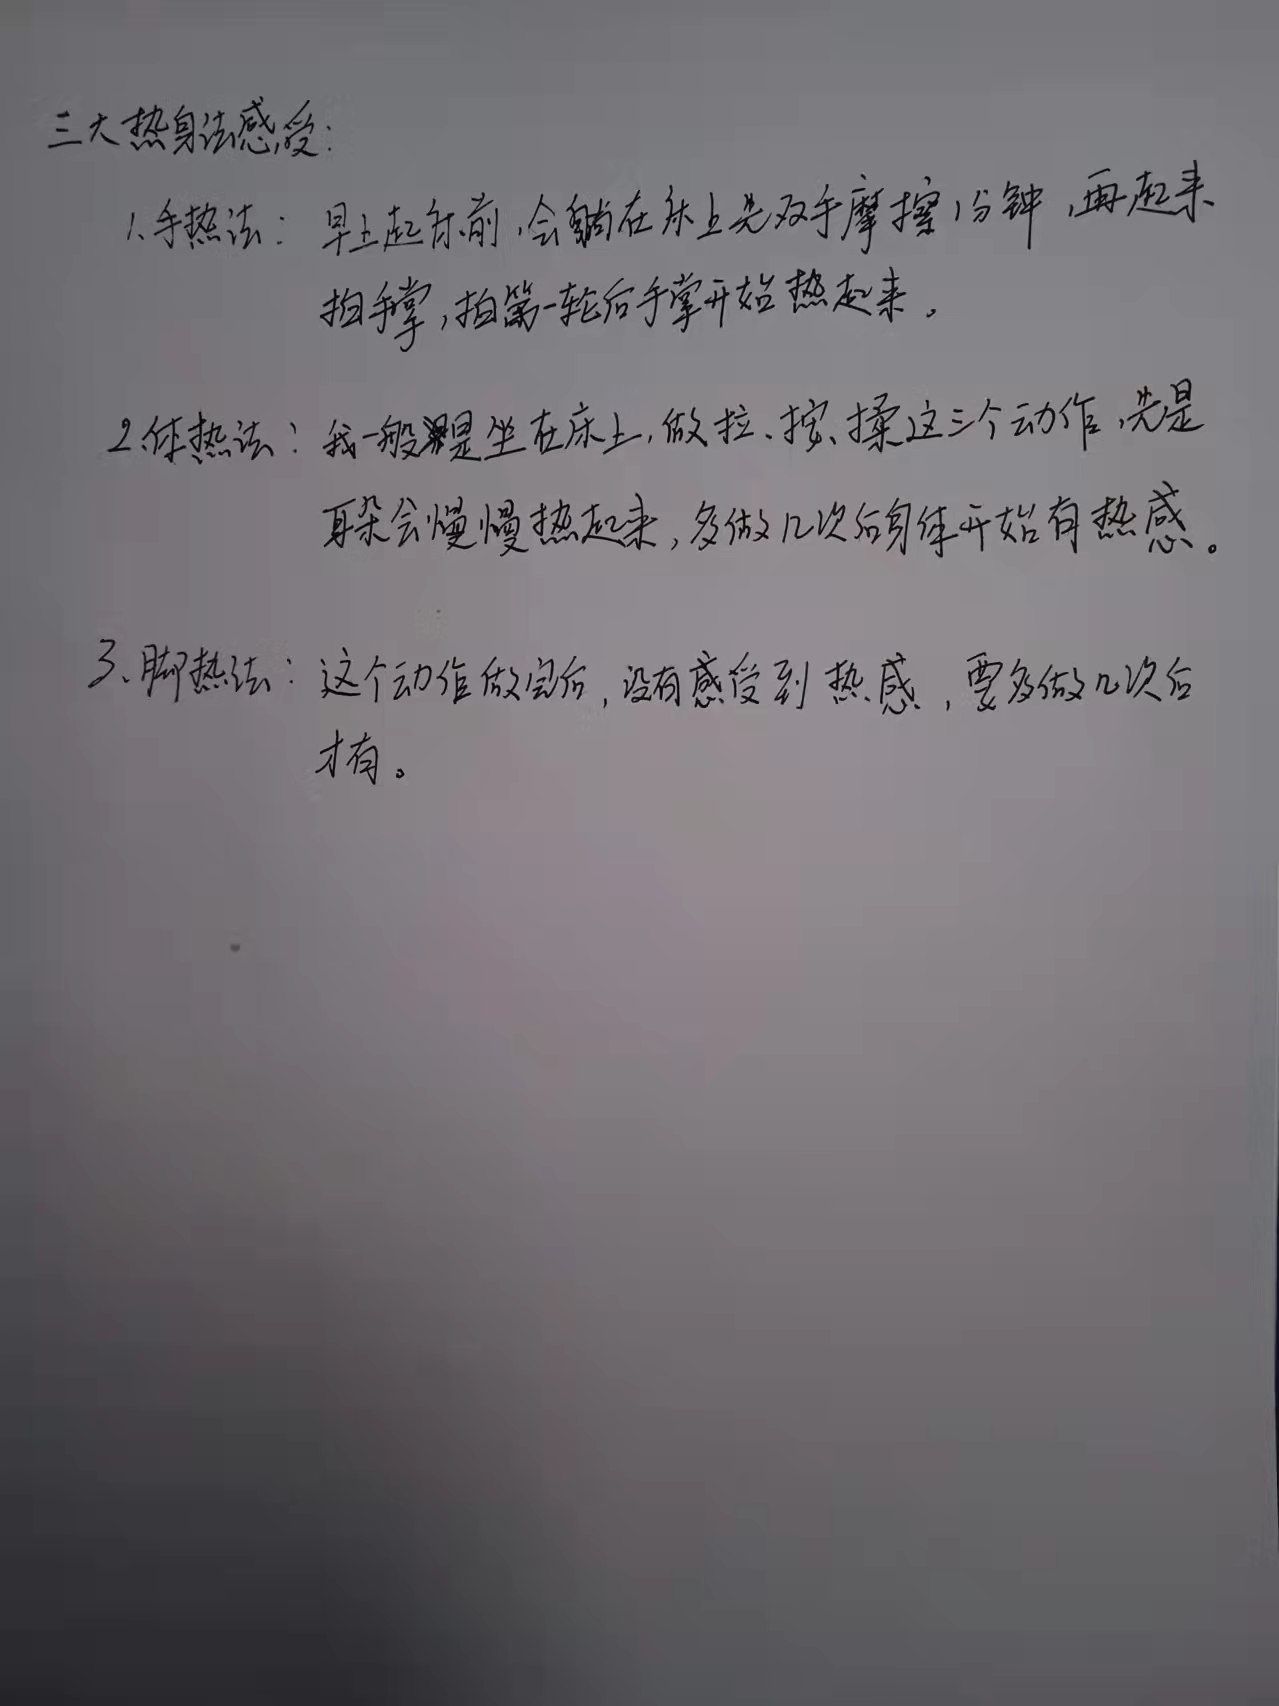 三大热身法感受:
1、手热法: 早上起床前,会躺在床上先双手摩擦1分钟,再起来
拍手掌,拍第一轮后手掌开始热起来。
2、体热法: 我一般是坐在床上,做拉、按、揉这三个动作,先是
耳朵会慢慢热起来,多做几次后身体开始有热感。
3、脚热法: 这个动作做完后,没有感受到热感,要多做几次后
才有。